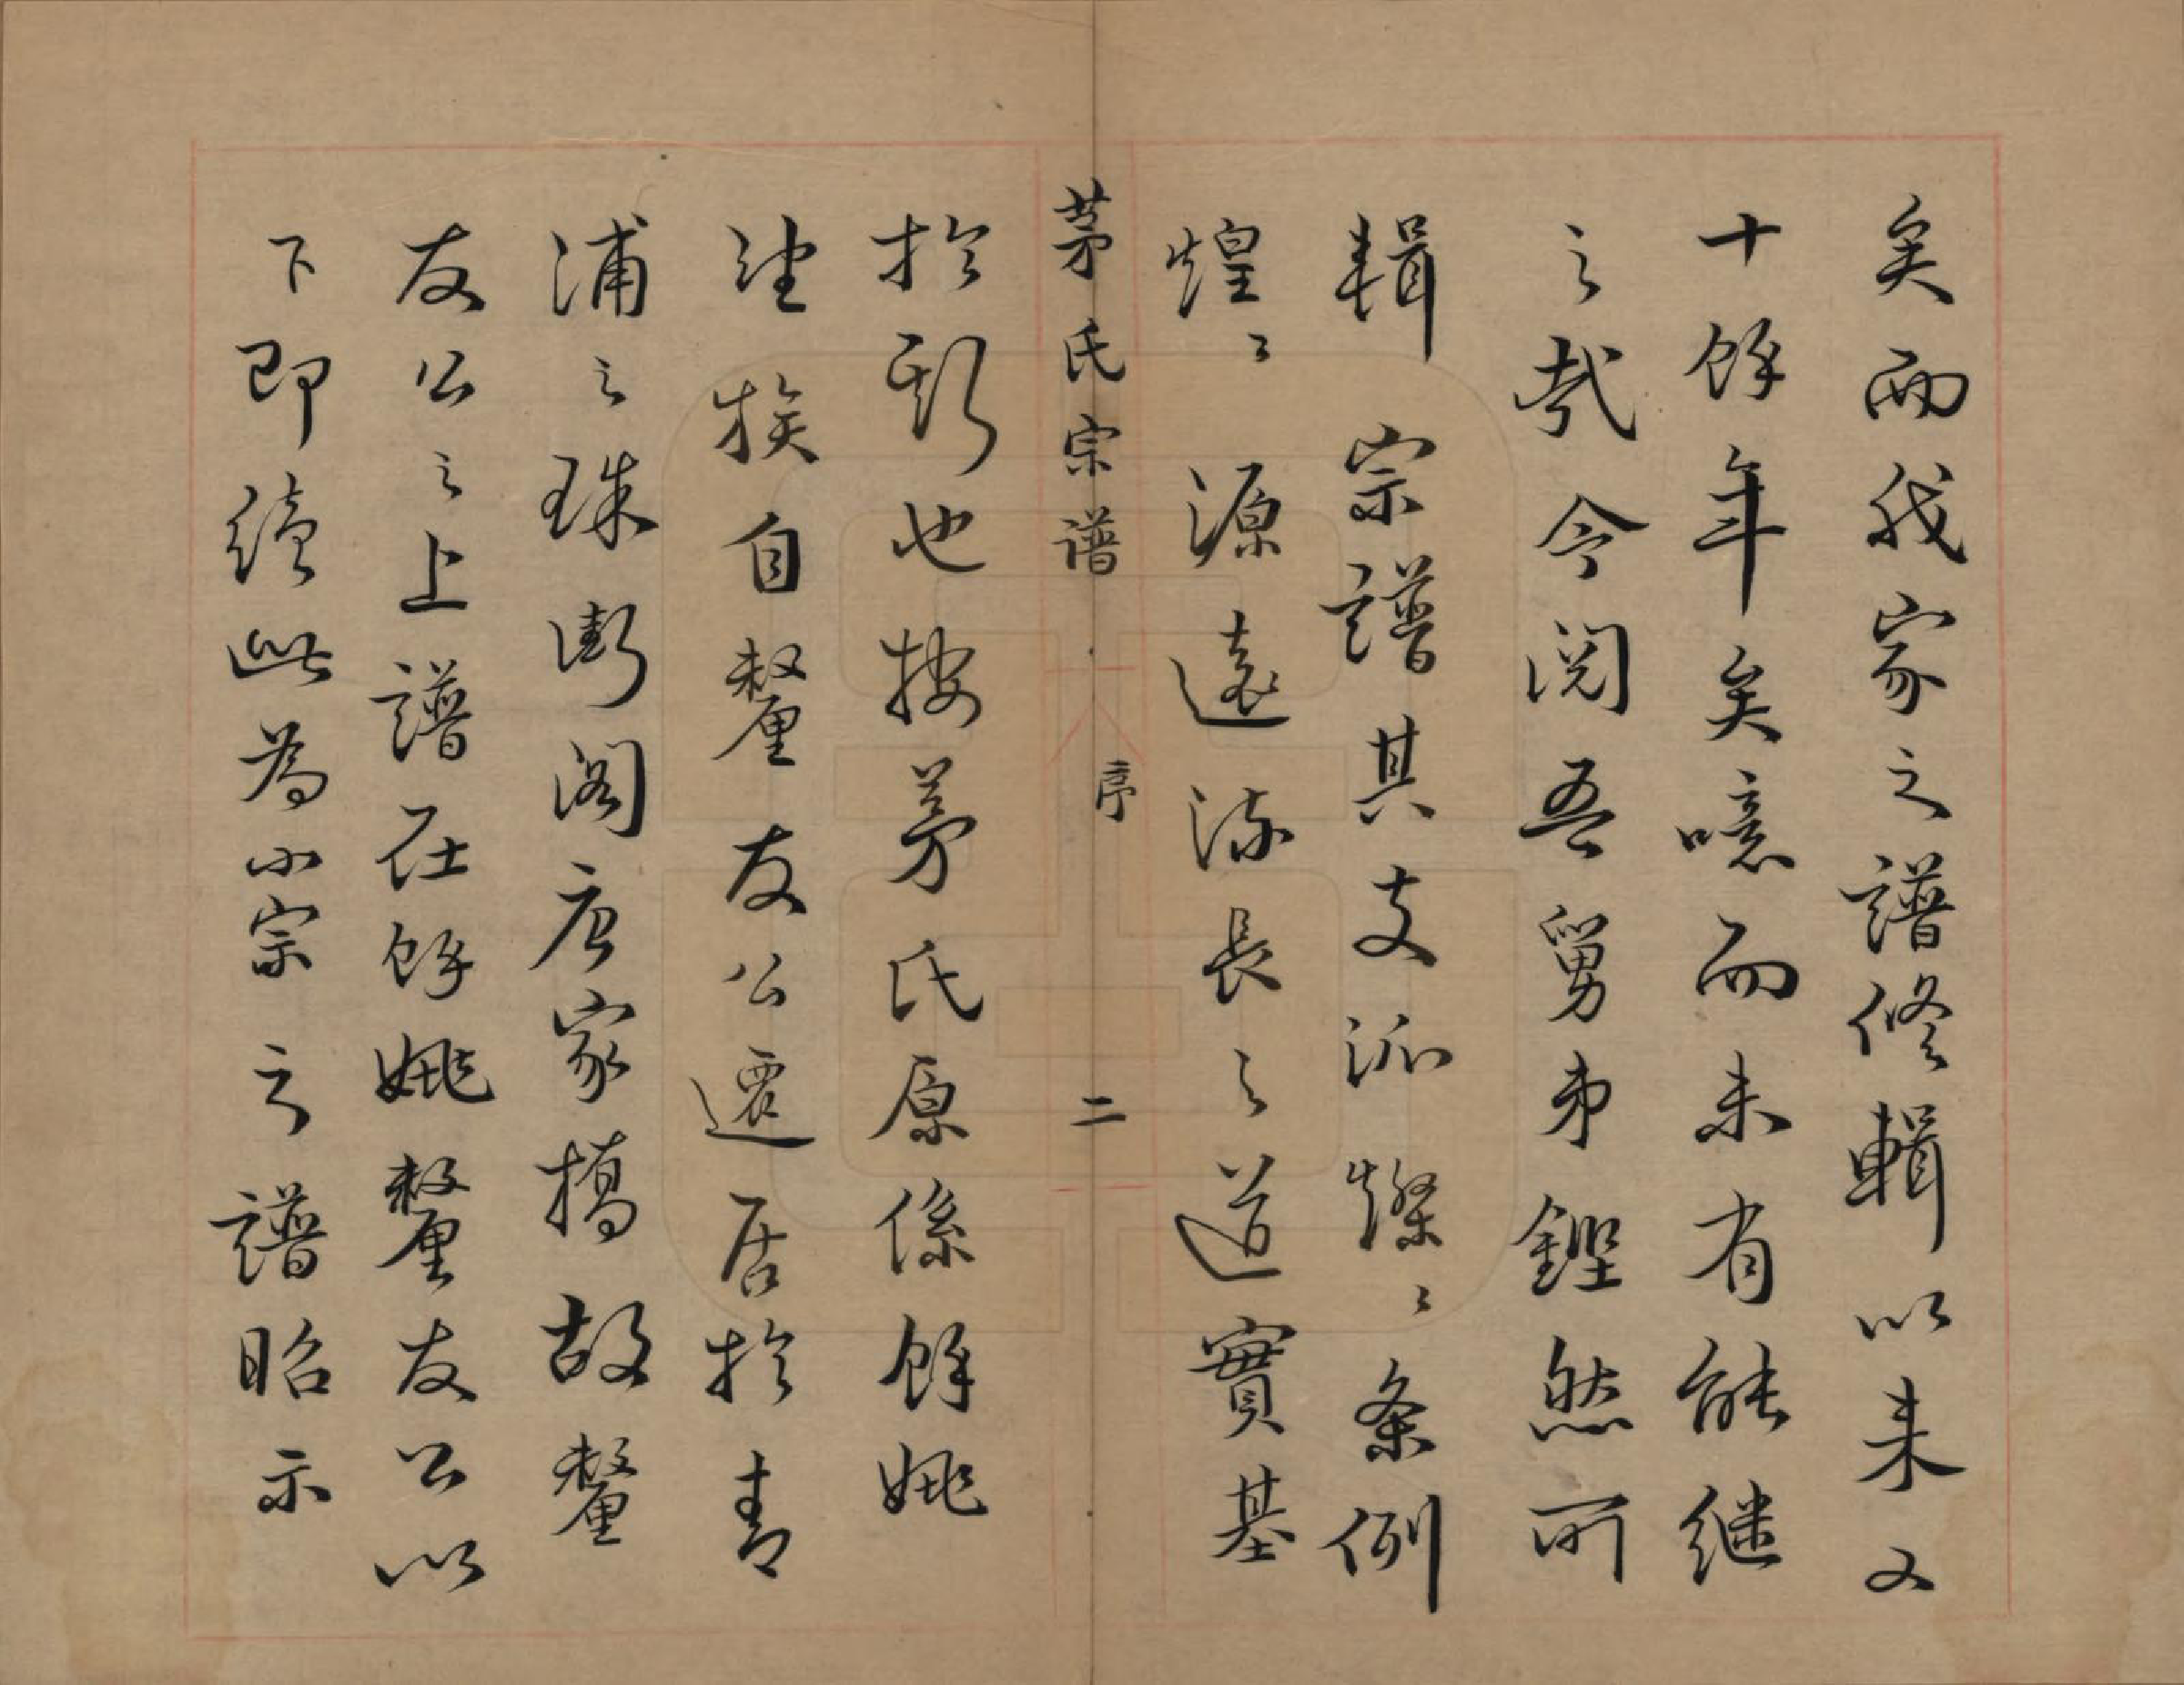 矣而我家之譜修輯以来又
十餘年矣噫而未有能繼
之哉今阅吾舅弟鏗然所
輯宗譜其支派燦〻条例
煌〻源遠流長之道實基
茅氏宗谱 序 二
於斯也按茅氏原係餘姚
望族自鏊友公遷居於青
浦之珠街阁唐家橋故鏊
友公之上譜在餘姚鏊友公以
下即續此為小宗之譜昭示